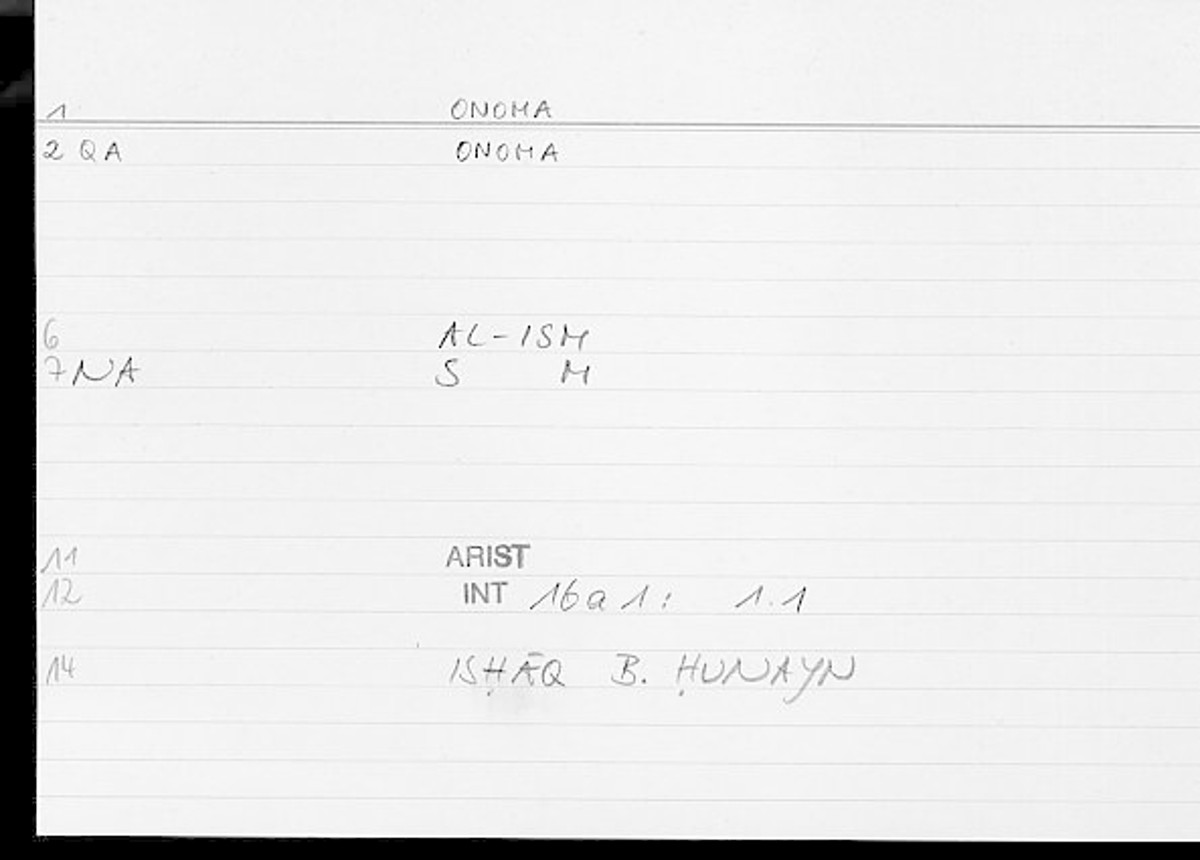 1 ONOMA
2 QA ONOMA
6 AL-ISM
7 NA S M
11 ARIST
12 INT 16a1: 1.1
14 ISḤĀQ B. ḤUNAYN